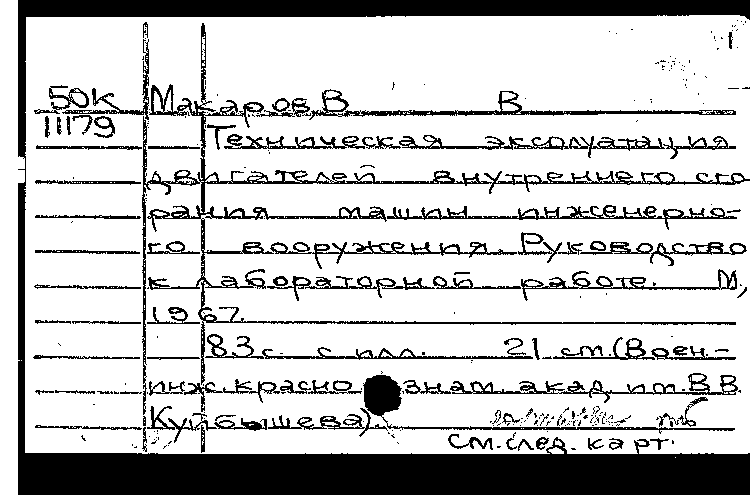 1
50К Макаров, В В
11179 Техническая эксплуатация
двигателей внутреннего сго
рания машин инженерно-
го вооружения. Руководство
к лабораторной работе. М,
1967.
83с. с илл. 21 см. (Воен.-
инж. краснознам. акад. им. В В
Куйбышева).
см. след. карт.